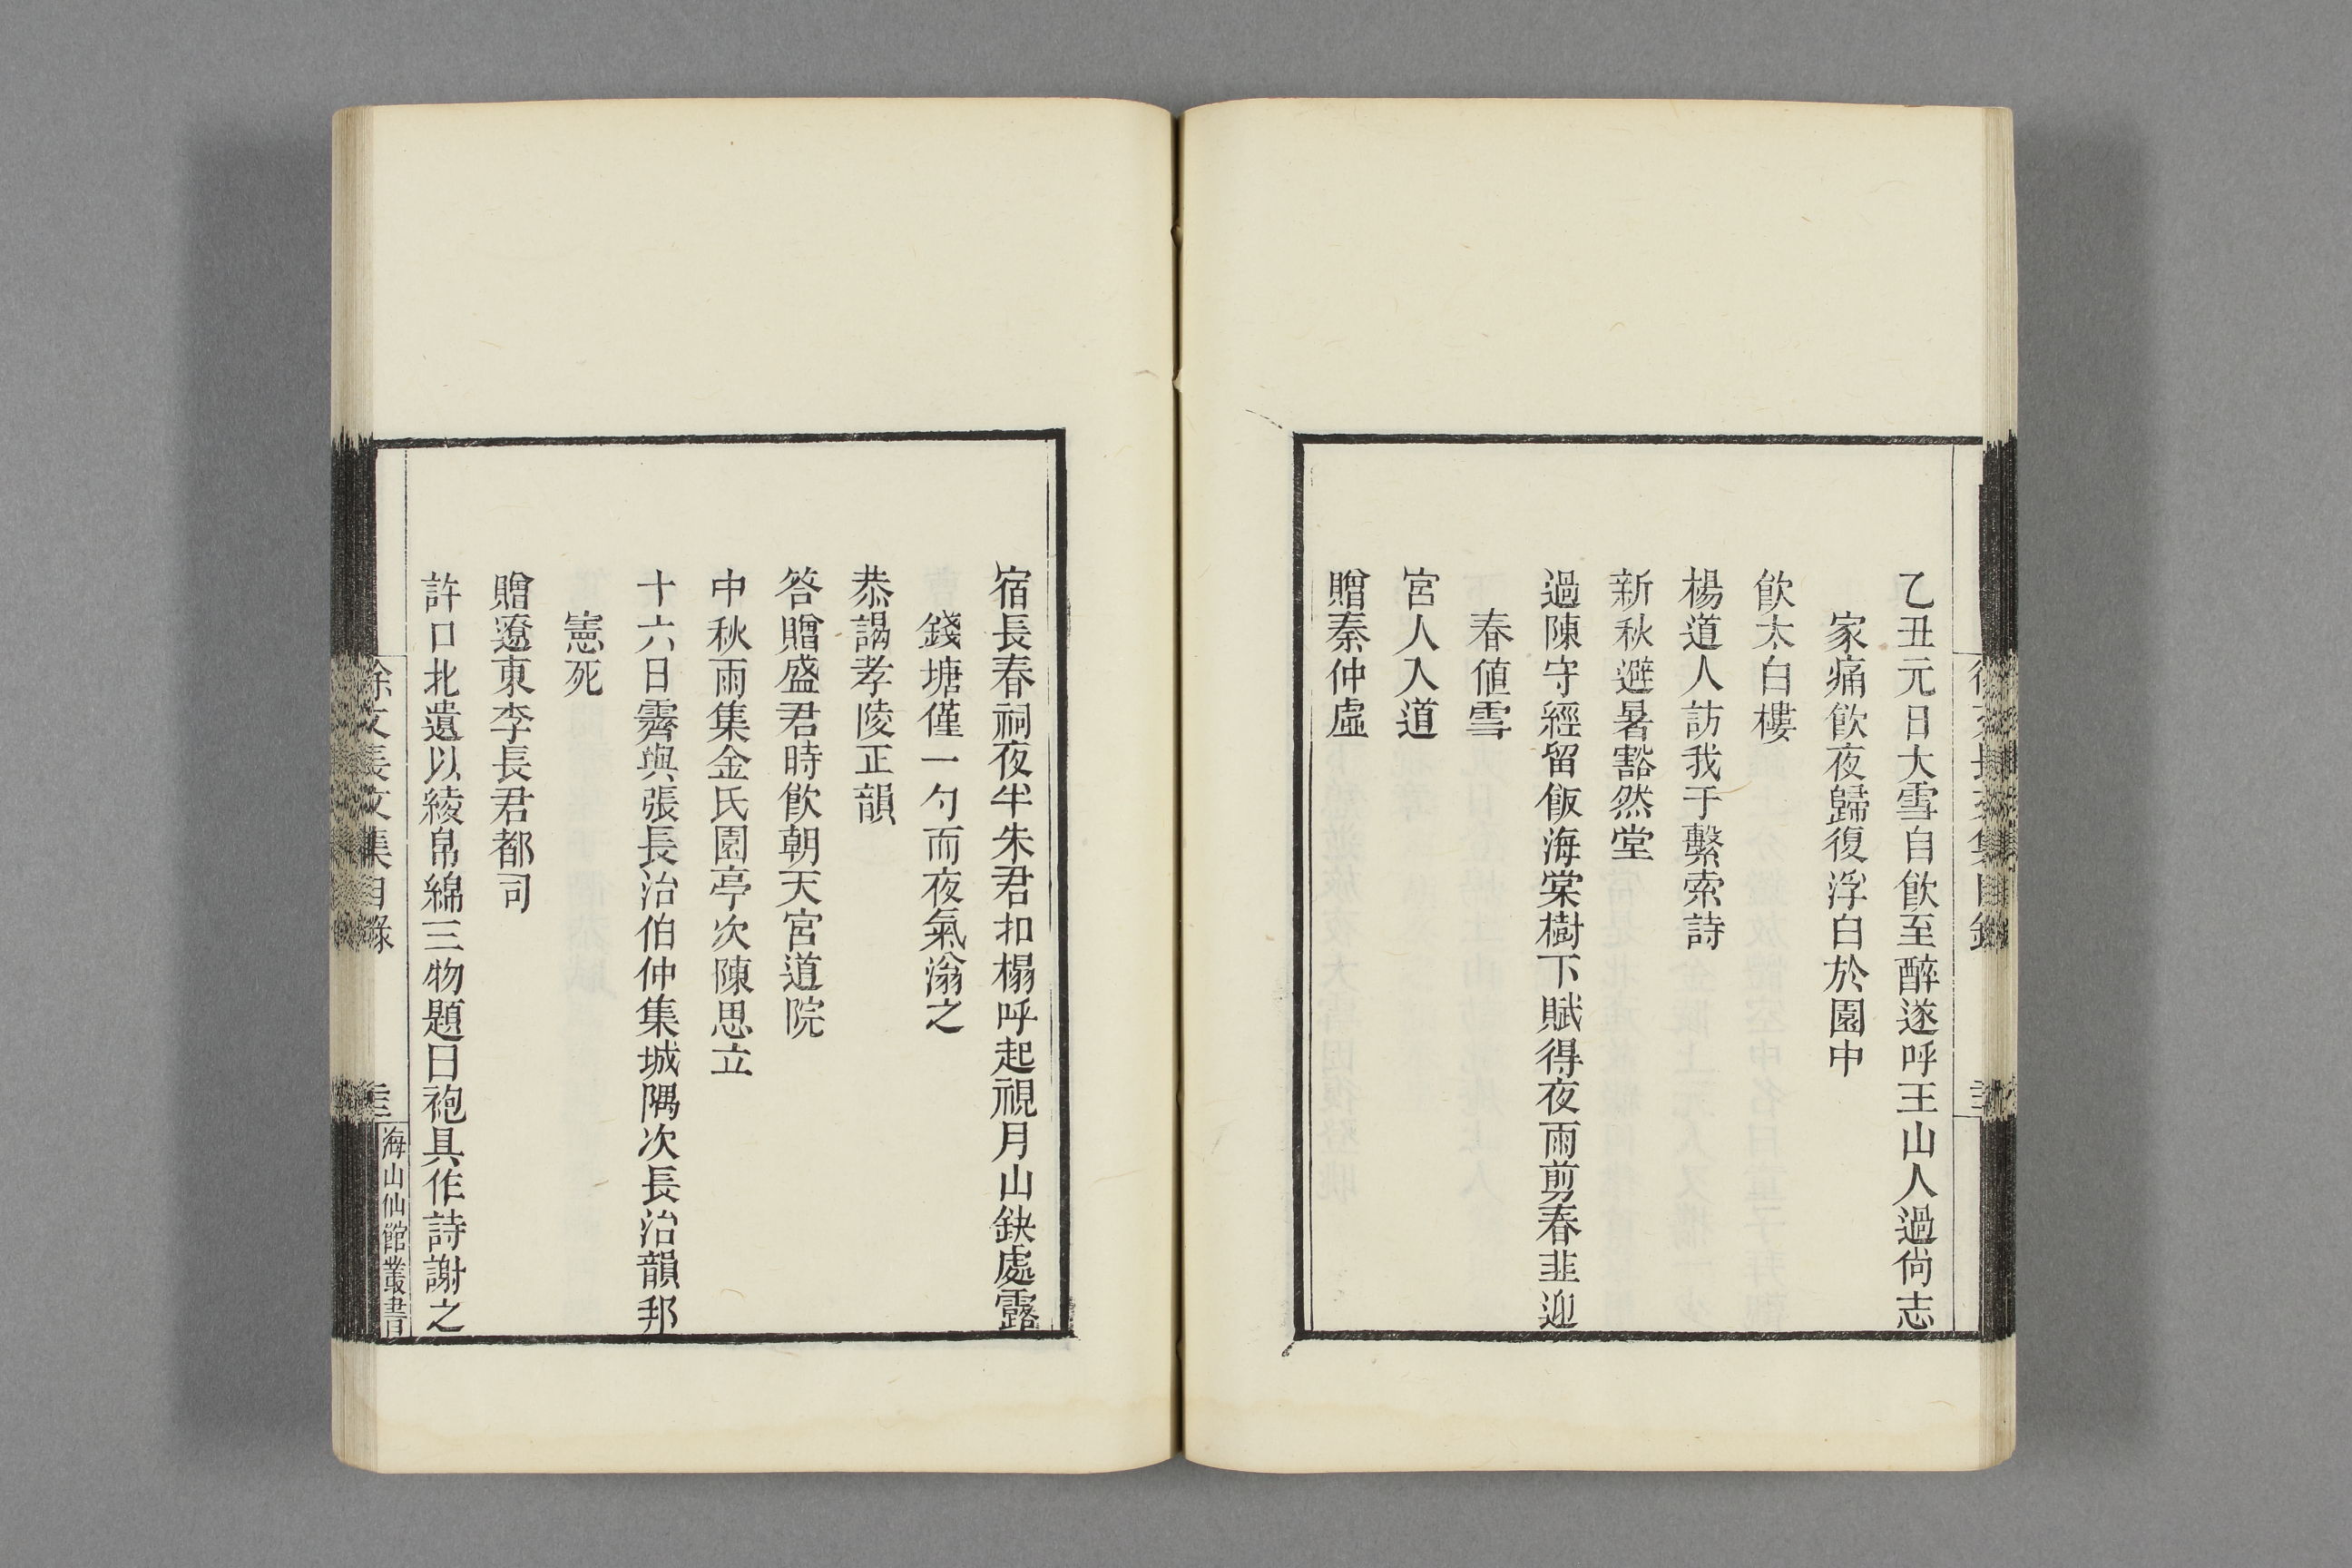 乙丑元日大雪自飲至醉遂呼王山人過尙志
家痛飲夜歸復浮白於園中
飲太白樓
楊道人訪我于繫索詩
新秋避暑豁然堂
過陳守經留飯海棠樹下賦得夜雨剪春韭迎
春値雪
宮人入道
贈秦仲虛
宿長春祠夜半朱君扣榻呼起視月山缺處露
錢塘僅一勺而夜氣滃之
恭謁孝陵正韻
答贈盛君時飲朝天宮道院
中秋雨集金氏園亭次陳思立
十六日霽與張長治伯仲集城隅次長治韻邦
憲死
贈遼東李長君都司
許口北遺以綾帛綿三物題曰袍具作詩謝之
徐文長文集目錄
海山仙館叢書